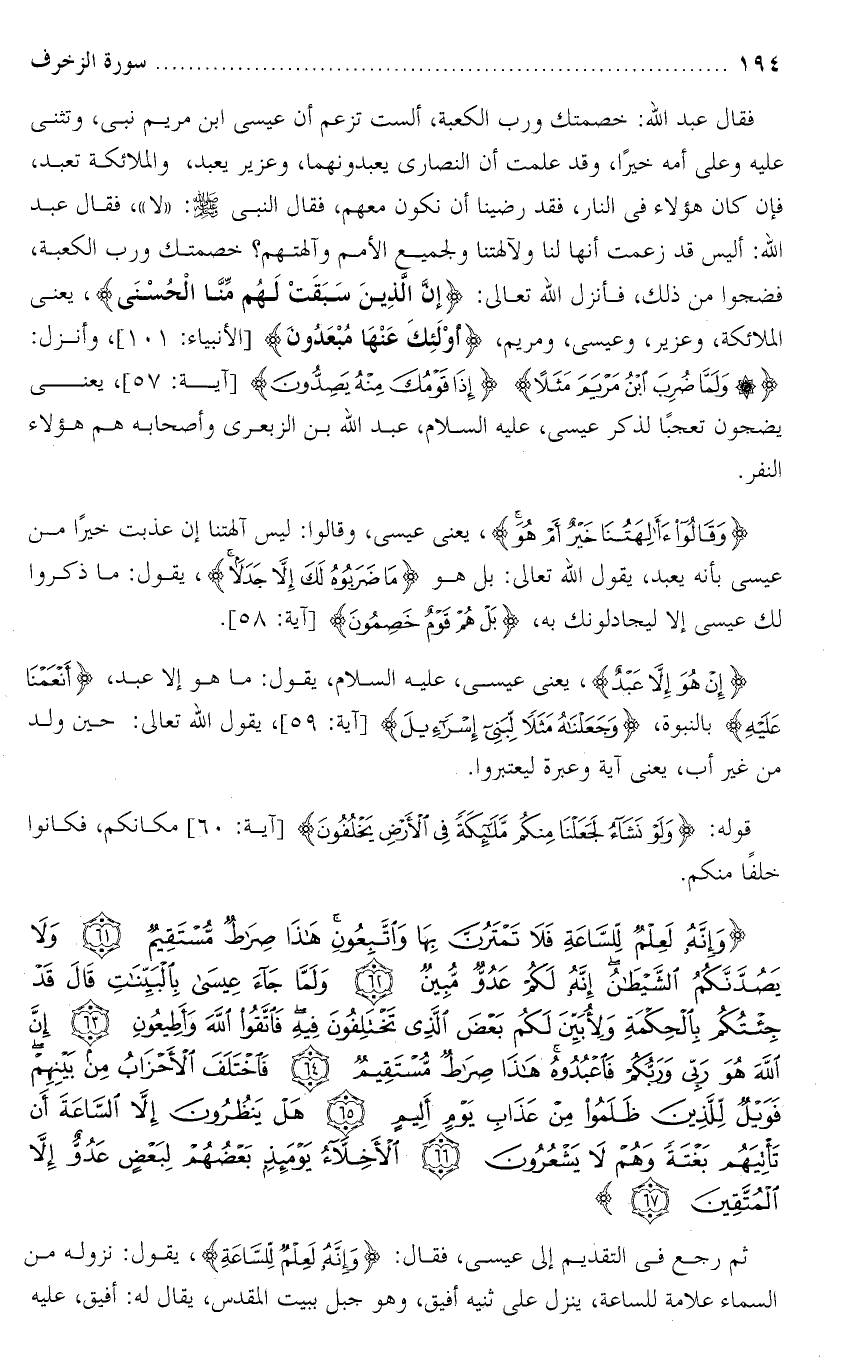 ١٩٤ ........................................................................ سورة الزخرف
فقال عبد الله: خصمتك ورب الكعبة، ألست تزعم أن عيسى ابن مريم نبى، وتثنى
عليه وعلى أمه خيرًا، وقد علمت أن النصارى يعبدونهما، وعزير يعبد، والملائكة تعبد،
فإن كان هؤلاء فى النار، فقد رضينا أن نكون معهم، فقال النبى ﷺ: «لا»، فقال عبد
الله: أليس قد زعمت أنها لنا ولآلهتنا ولجميع الأمم وآلهتهم؟ خصمتك ورب الكعبة،
فضجوا من ذلك، فأنزل الله تعالى: ﴿إِنَّ الَّذِينَ سَبَقَتْ لَهُم مِّنَّا الْحُسْنَى﴾، يعنى
الملائكة، وعزير، وعيسى، ومريم، ﴿أُوْلَئِكَ عَنْهَا مُبْعَدُونَ﴾ [الأنبياء: ١٠١]، وأنزل:
﴿۞ وَلَمَّا ضُرِبَ ٱبْنُ مَرْيَمَ مَثَلًا﴾ ﴿إِذَا قَوْمُكَ مِنْهُ يَصِدُّونَ﴾ [آية: ٥٧]، يعنى
يضجون تعجبًا لذكر عيسى، عليه السلام، عبد الله بن الزبعرى وأصحابه هم هؤلاء
النفر.
﴿وَقَالُوٓا۟ ءَأَٰلِهَتُنَا خَيْرٌ أَمْ هُوَ ۚ﴾، يعنى عيسى، وقالوا: ليس آلهتنا إن عذبت خيرًا من
عيسى بأنه يعبد، يقول الله تعالى: بل هو ﴿مَا ضَرَبُوهُ لَكَ إِلَّا جَدَلًۢا ۚ﴾، يقول: ما ذكروا
لك عيسى إلا ليجادلونك به، ﴿بَلْ هُمْ قَوْمٌ خَصِمُونَ﴾ [آية: ٥٨].
﴿إِنْ هُوَ إِلَّا عَبْدٌ﴾، يعنى عيسى، عليه السلام، يقول: ما هو إلا عبد، ﴿أَنْعَمْنَا
عَلَيْهِ﴾ بالنبوة، ﴿وَجَعَلْنَٰهُ مَثَلًا لِّبَنِىٓ إِسْرَٰٓءِيلَ﴾ [آية: ٥٩]، يقول الله تعالى: حين ولد
من غير أب، يعنى آية وعبرة ليعتبروا.
قوله: ﴿وَلَوْ نَشَآءُ لَجَعَلْنَا مِنكُم مَّلَٰٓئِكَةً فِى ٱلْأَرْضِ يَخْلُفُونَ﴾ [آية: ٦٠] مكانكم، فكانوا
خلفًا منكم.
﴿وَإِنَّهُۥ لَعِلْمٌ لِّلسَّاعَةِ فَلَا تَمْتَرُنَّ بِهَا وَٱتَّبِعُونِ ۚ هَٰذَا صِرَٰطٌ مُّسْتَقِيمٌ ٦١ وَلَا
يَصُدَّنَّكُمُ ٱلشَّيْطَٰنُ ۖ إِنَّهُۥ لَكُمْ عَدُوٌّ مُّبِينٌ ٦٢ وَلَمَّا جَآءَ عِيسَىٰ بِٱلْبَيِّنَٰتِ قَالَ قَدْ
جِئْتُكُم بِٱلْحِكْمَةِ وَلِأُبَيِّنَ لَكُم بَعْضَ ٱلَّذِى تَخْتَلِفُونَ فِيهِ ۖ فَٱتَّقُوا۟ ٱللَّهَ وَأَطِيعُونِ ٦٣ إِنَّ
ٱللَّهَ هُوَ رَبِّى وَرَبُّكُمْ فَٱعْبُدُوهُ ۚ هَٰذَا صِرَٰطٌ مُّسْتَقِيمٌ ٦٤ فَٱخْتَلَفَ ٱلْأَحْزَابُ مِنۢ بَيْنِهِمْ ۖ
فَوَيْلٌ لِّلَّذِينَ ظَلَمُوا۟ مِنْ عَذَابِ يَوْمٍ أَلِيمٍ ٦٥ هَلْ يَنظُرُونَ إِلَّا ٱلسَّاعَةَ أَن
تَأْتِيَهُم بَغْتَةً وَهُمْ لَا يَشْعُرُونَ ٦٦ ٱلْأَخِلَّآءُ يَوْمَئِذٍۭ بَعْضُهُمْ لِبَعْضٍ عَدُوٌّ إِلَّا
ٱلْمُتَّقِينَ ٦٧ ﴾
ثم رجع فى التقديم إلى عيسى، فقال: ﴿وَإِنَّهُۥ لَعِلْمٌ لِّلسَّاعَةِ﴾، يقول: نزوله من
السماء علامة للساعة، ينزل على ثنيه أفيق، وهو جبل ببيت المقدس، يقال له: أفيق، عليه